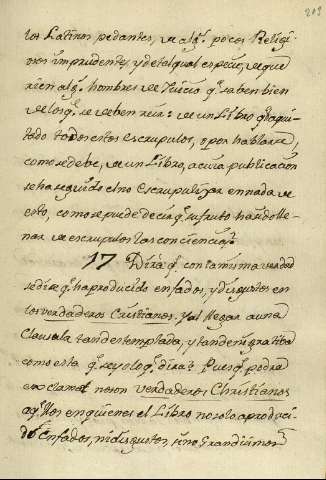 213
los Latinos pedantes, de alg.s pocos Religi-
osos imprudentes, y de tal qual especie, de que
rien alg.s hombres de Juicio q.e saben bien
de los q.e se deben reir: de un Libro q.e ha qui-
tado todos estos escrupulos, o por hablar
como se debe, de un Libro, a cuia publicacion
se ha seguido el no escrupulizar en nada de
esto, como se puede decia q.e su fruto han de lle-
nar de escrupulos las conciencias.
17 Dirá q.e con la misma verdad
se dira q.e ha producido enfados, y disgustos en
los verdaderos Cristianos. Y al llegar a una
Clausula tan destemplada, y tan denigrativa
como esta q.e se yo lo q.e dira? Pues q.e podrá
exclamar no son verdaderos Christianos
aq.llos en quienes el Libro no solo a produci-
do Enfados, ni disgustos, sino Grandisimos